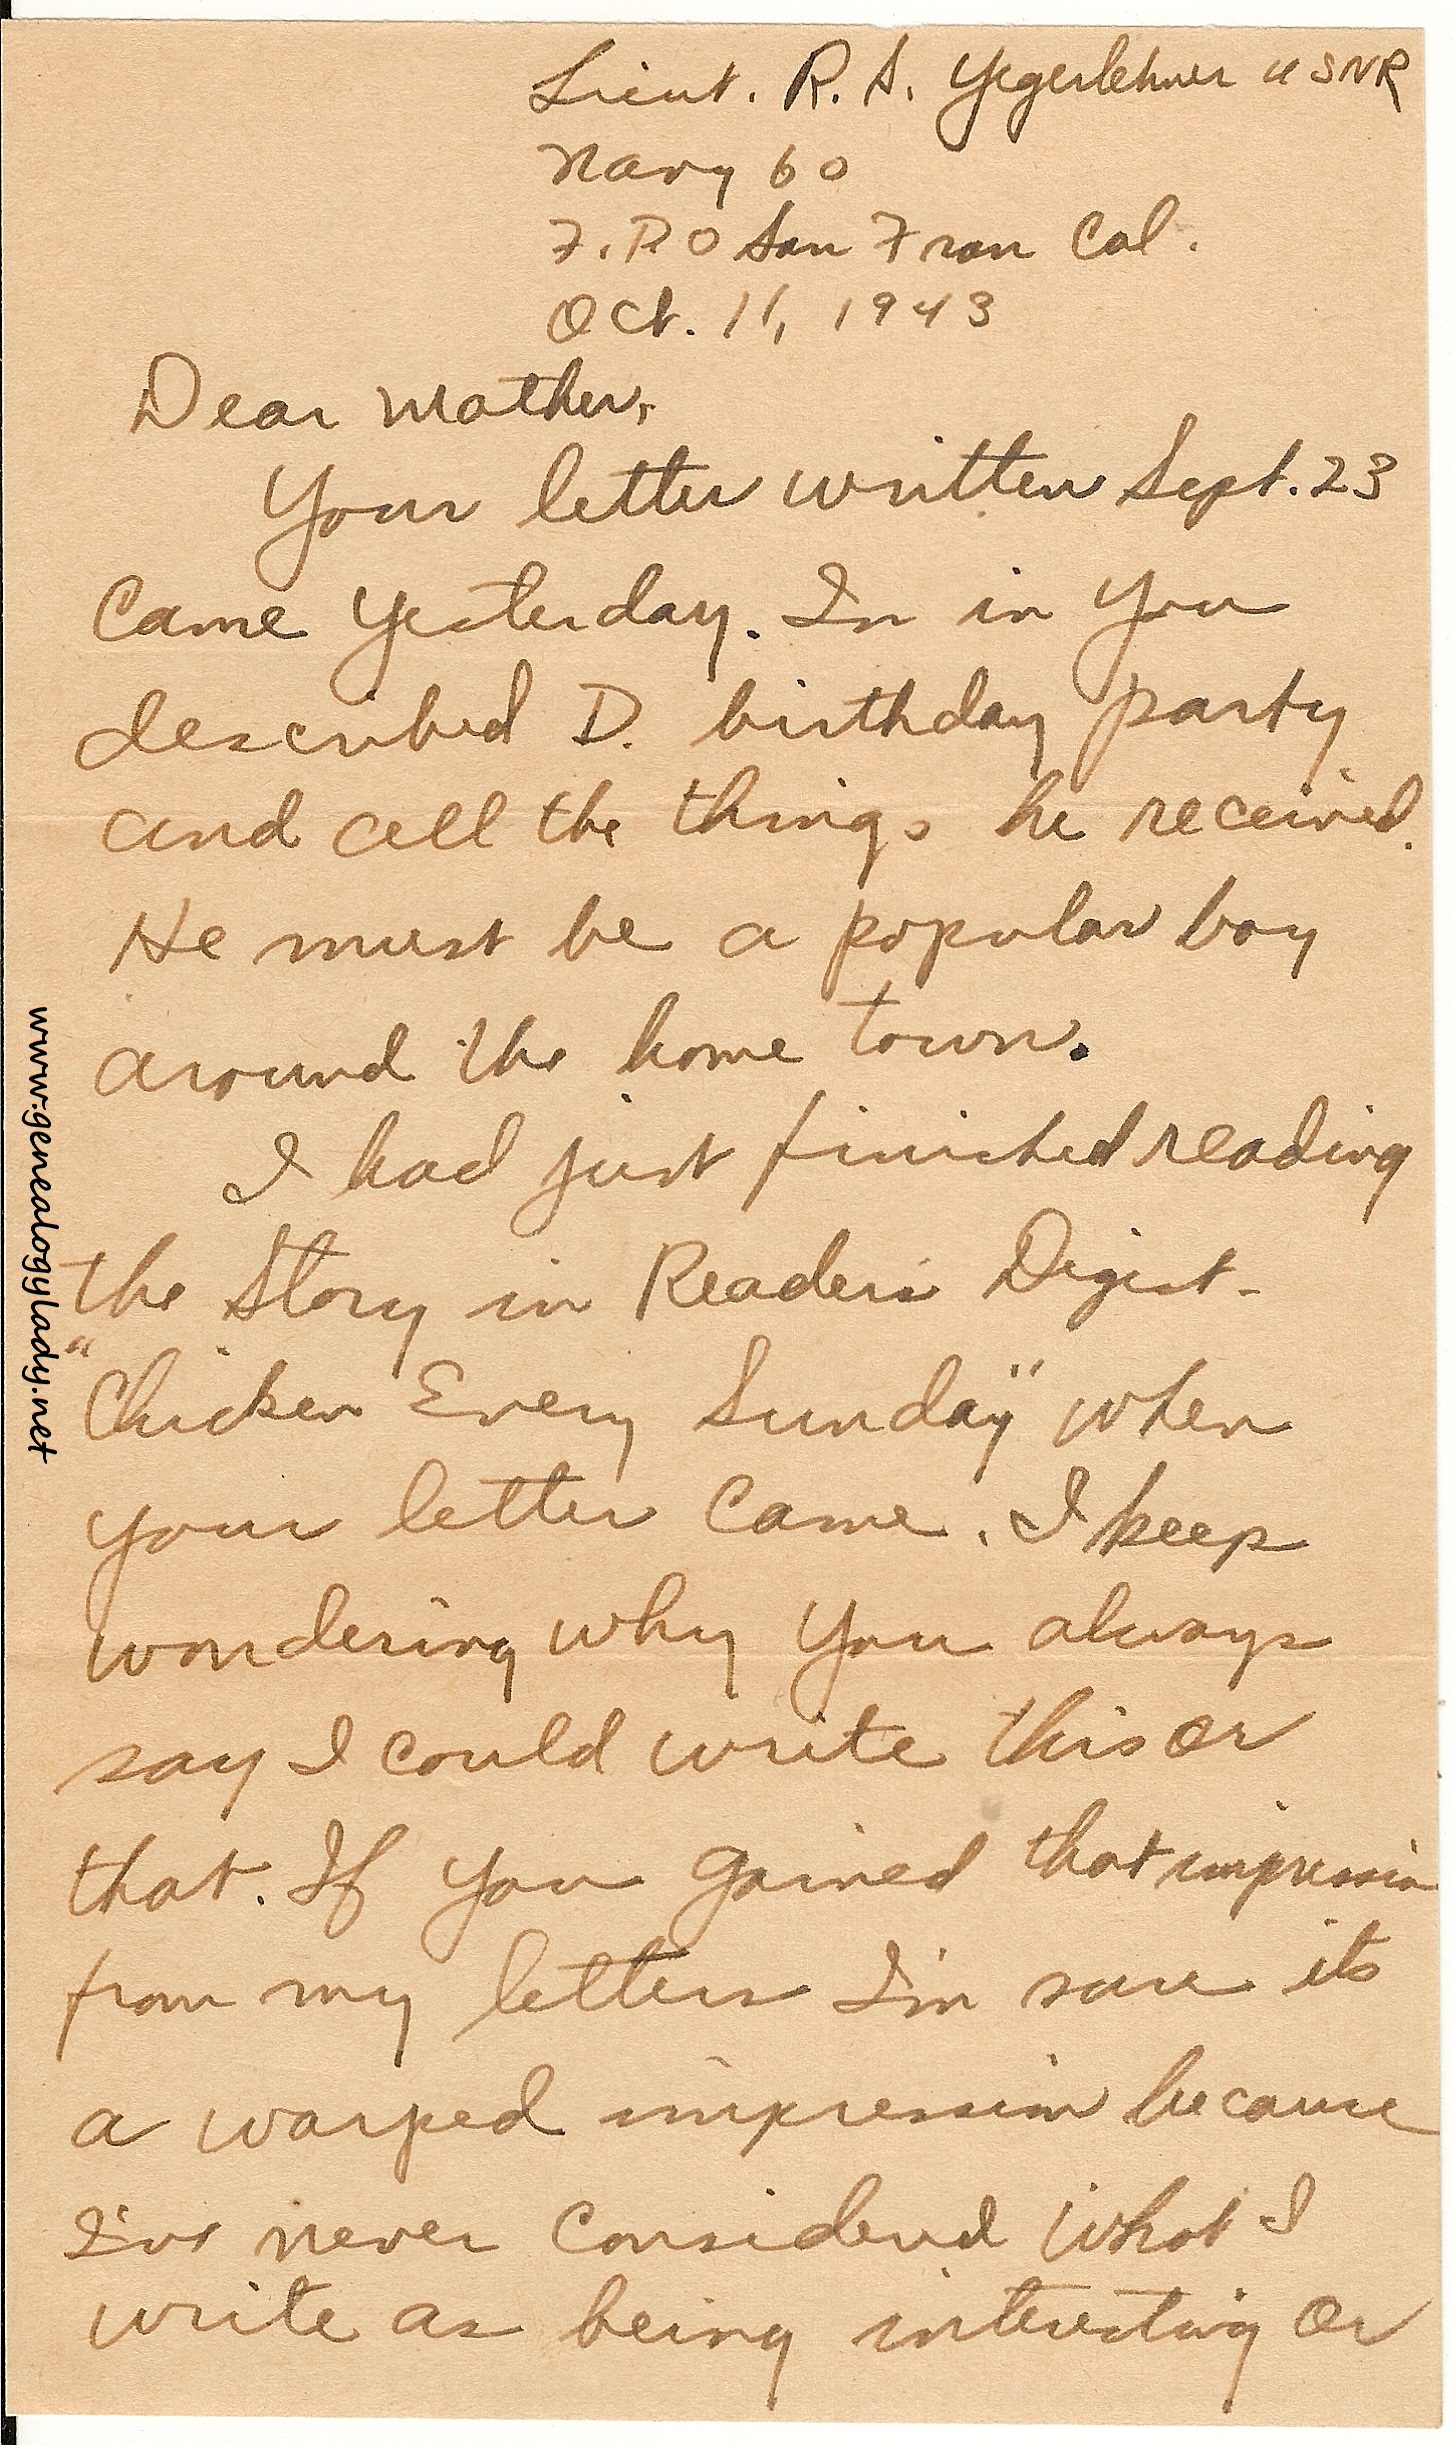 Lieut. R. S. Yegerlehner USNR
Navy 60
F.P.O San Fran Cal.
Oct. 11, 1943
Dear Mother,
Your letter written Sept. 23
came yesterday. In in you
described D. birthday party
and all the things he received.
He must be a popular boy
around the home town.
I had just finished reading
the Story in Reader's Digest-
"Chicken Every Sunday" when
your letter came. I keep
wondering why you always
say I could write this or
that. If you gained that impression
from my letters I'm sure its
a warped impression because
I've never considered what I
write as being interesting or
www.genealogylady.net